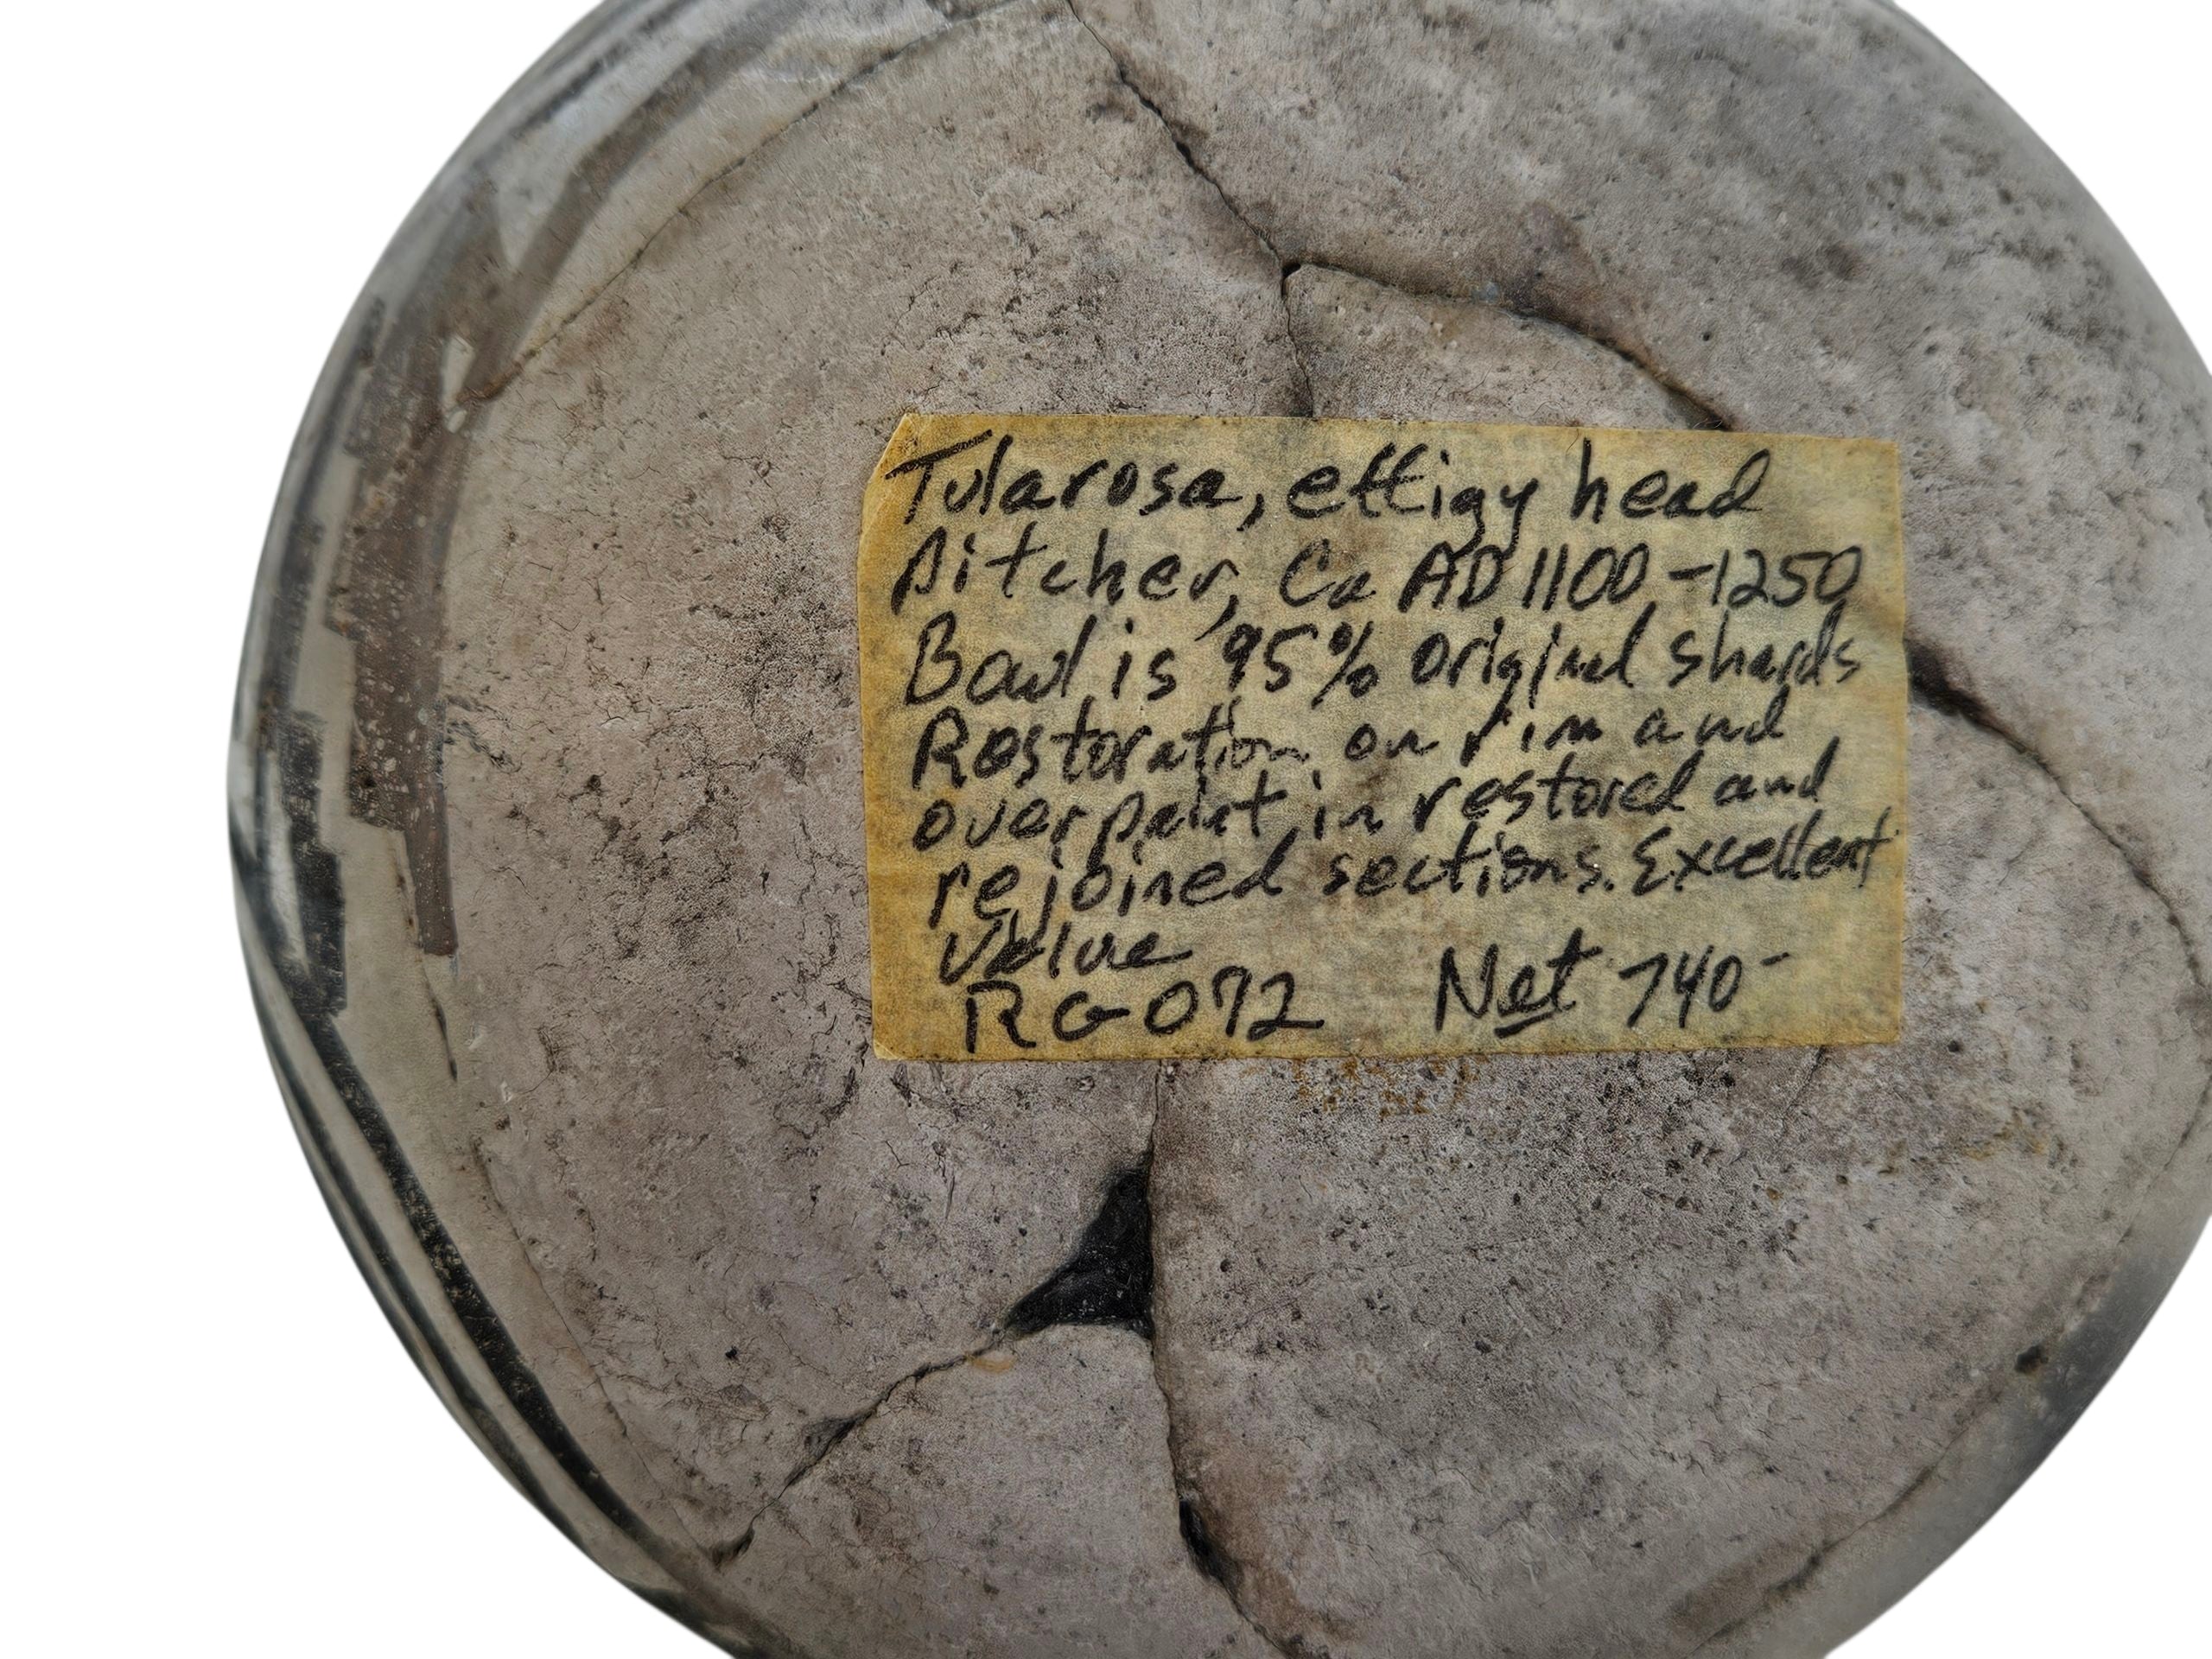 Tularosa, effigy head
Pitcher, Ca AD 1100-1250
Bowl is 95% original shards
Restoration on rim and
overpaint in restored and
rejoined sections. Excellent
Value
RG072 Net 740-